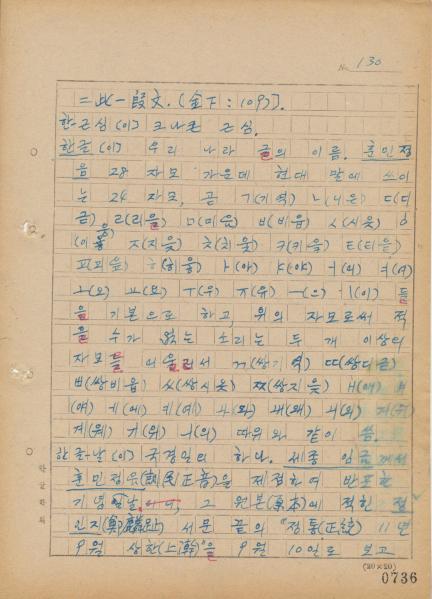 No. 130
=此一段文. (金下: 109).
한-근심 (이) 크나큰 근심.
한글 (이) 우리 나라 글의 이름. 훈민정
음 28 자모 가운데 현대 말에 쓰이
는 24 자모, 곧 ㄱ(기역) ㄴ(니은) ㄷ(디
귿) ㄹ(리을) ㅁ(미음) ㅂ(비읍) ㅅ(시옷) ㅇ
(이응) ㅈ(지읒) ㅊ(치읓) ㅋ(키읔) ㅌ(티읕)
ㅍ(피읖) ㅎ(히읗) ㅏ(아) ㅑ(야) ㅓ(어) ㅕ(여)
ㅗ(오) ㅛ(요) ㅜ(우) ㅠ(유) ㅡ(으) ㅣ(이) 들
을 기본으로 하고, 위의 자모로써 적
을 수가 없는 소리는 두 개 이상의
자모를 어울러서 ㄲ(쌍기역) ㄸ(쌍디귿)
ㅃ(쌍비읍) ㅆ(쌍시옷) ㅉ(쌍지읒) ㅐ(애) ㅒ
(얘) ㅔ(에) ㅖ(예) ㅘ(와) ㅙ(왜) ㅚ(외) ㅝ(워)
ㅞ(웨) ㅟ(위) ㅢ(의) 따위와 같이 씀.
한글-날 (이) 국경일의 하나. 세종 임금께서
훈민정음(訓民正音)을 제정하여 반포한
기념날, 그 원본(原本)에 적힌 정
인지(鄭麟趾) 서문 끝의 "정통(正統) 11년
9월 상한(上澣)"을 9월 10일로 보고
(20×20)
0736
한글학회